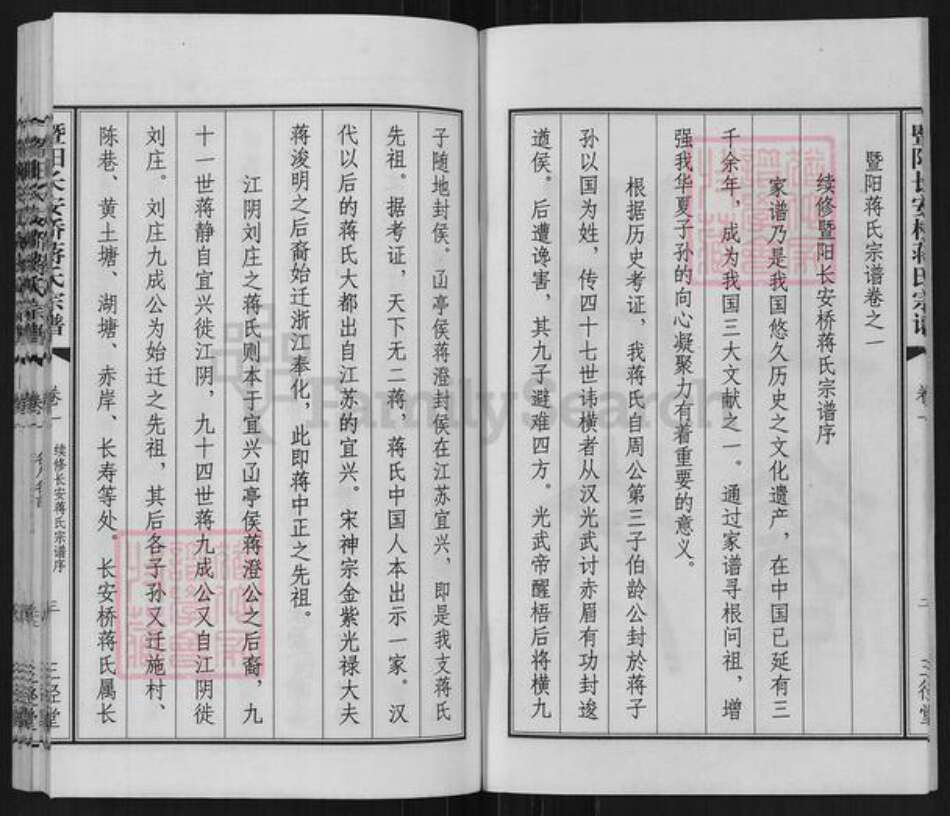 暨阳蒋氏宗谱卷之一
续修暨阳长安桥蒋氏宗谱序
家谱乃是我国悠久历史之文化遗产，在中国已延有三
千余年，成为我国三大文献之一。通过家谱寻根问祖，增
强我华夏子孙的向心凝聚力有着重要的意义。
根据历史考证，我蒋氏自周公第三子伯龄公封於蒋子
孙以国为姓，传四十七世讳横者从汉光武讨赤眉有功封逡
遒侯。后遭谗害，其九子避难四方。光武帝醒悟后将横九
子随地封侯。凾亭侯蒋澄封侯在江苏宜兴，即是我支蒋氏
先祖。据考证，天下无二蒋，蒋氏中国人本出示一家。汉
代以后的蒋氏大都出自江苏的宜兴。宋神宗金紫光禄大夫
蒋浚明之后裔始迁浙江奉化，此即蒋中正之先祖。
江阴刘庄之蒋氏则本于宜兴凾亭侯蒋澄公之后裔，九
十一世蒋静自宜兴徙江阴，九十四世蒋九成公又自江阴徙
刘庄。刘庄九成公为始迁之先祖，其后各子孙又迁施村、
陈巷、黄土塘、湖塘、赤岸、长寿等处。长安桥蒋氏属长
暨阳长安桥蒋氏宗谱
卷一
续修长安蒋氏宗谱序
三
三径堂
FamilySearch